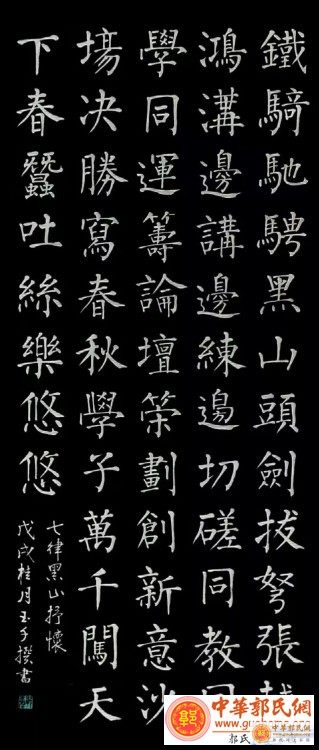 鐵騎馳騁黑山頭劍拔弩張越
鴻溝邊講邊練邊切磋同教同
學同運籌論壇策劃創新意沙
塲决勝寫春秋學子萬千闖天
下春蠶吐絲樂悠悠
七律黑山抒懷
戊戌桂月玉千撰書
中華郭氏網
郭氏